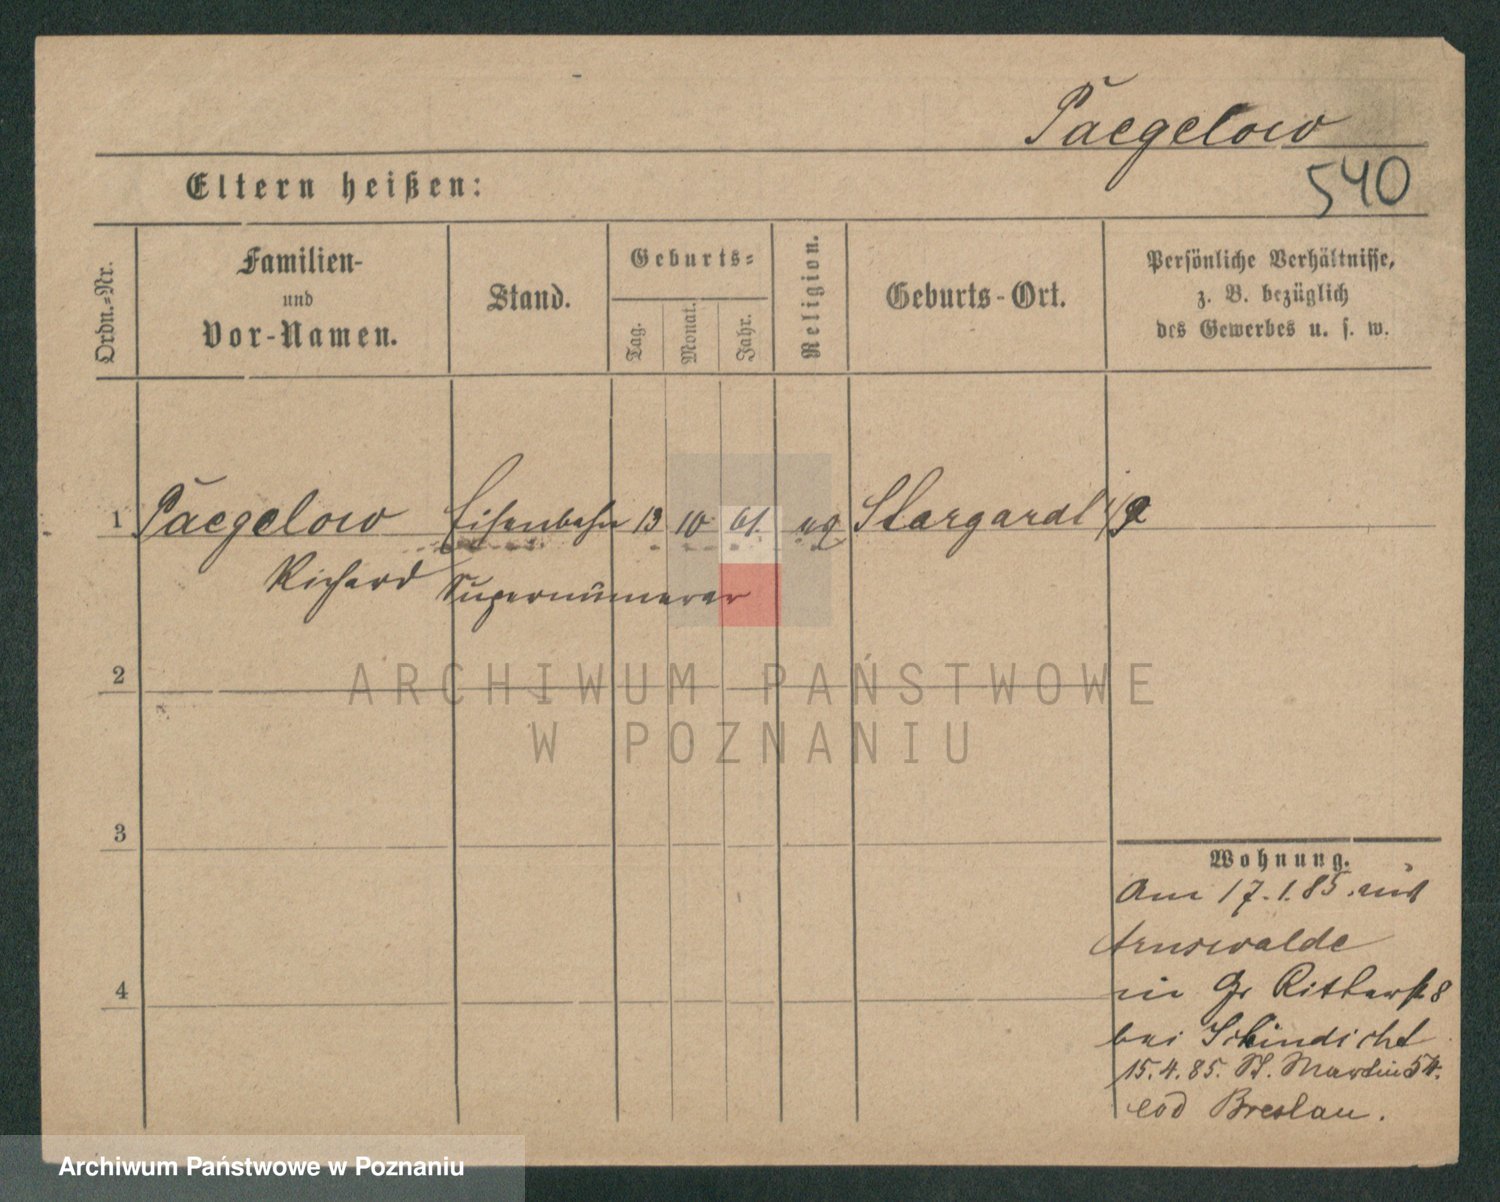 Paegelow
540
Eltern heißen:
Ordn.-Nr.
Familien-
und
Vor-Namen.
Stand.
Geburts-
Tag.
Monat.
Jahr.
Religion.
Geburts-Ort.
Persönliche Verhältnisse,
z. B. bezüglich
des Gewerbes u. s. w.
1 Paegelow Eisenbahn 13 10 61. Stargard
Richard Supernumerar
2
ARCHIWUM PAŃSTWOWE
W POZNANIU
3
4
Wohnung.
Am 17.1.85. aus
Arnswalde
in Gr Ritterst 8
bei
15.4.85. St. Martin 54.
Breslau.
Archiwum Państwowe w Poznaniu